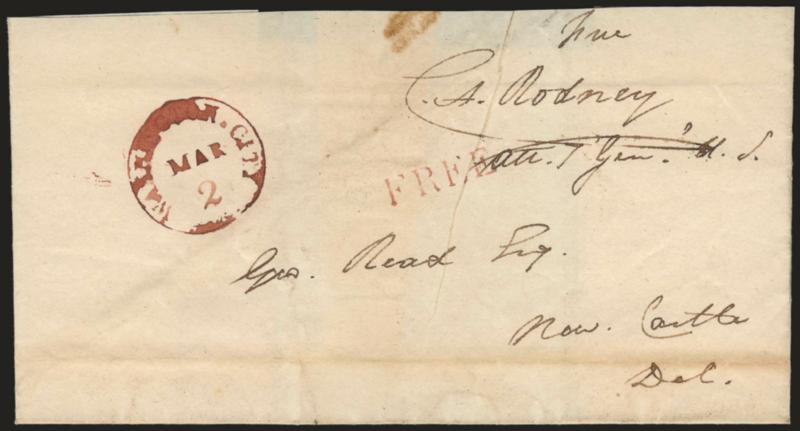 free
C. A. Rodney
Att. Gen. U. S.
WASHN. CITY
MAR
2
FREE
Geo. Read Esq.
New Castle
Del.